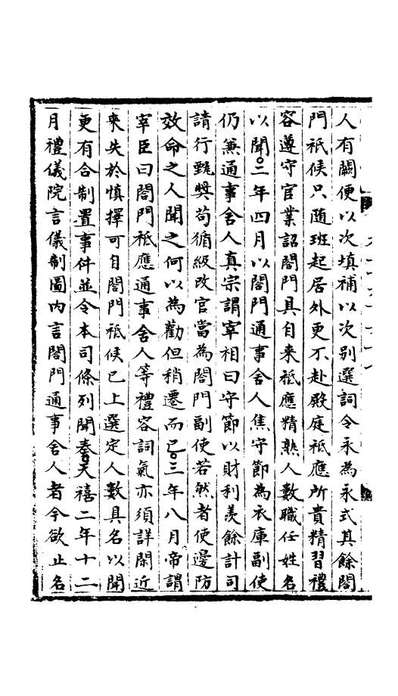 人有闕便以次填補以次别選詞令永為永式其餘閤
門祗候只随班起居外更不赴殿庭祗應所貴精習禮
容遵守官業詔閤門具自来祗應精熟人數職任姓名
以聞○二年四月以閤門通事舍人焦守節為衣庫副使
仍兼通事舍人真宗謂宰相曰守節以財利羡餘計司
請行甄奨苟循級改官當為閤門副使若然者使邊防
效命之人聞之何以為勸但稍遷而已○三年八月帝謂
宰臣曰閤門祗應通事舍人等禮容詞氣亦須詳閑近
来失於慎擇可自閤門祗候已上選定人數具名以聞
更有合制置事件並令本司條列聞奏○天禧二年十二
月禮儀院言儀制圖内言閤門通事舍人者今欲止名